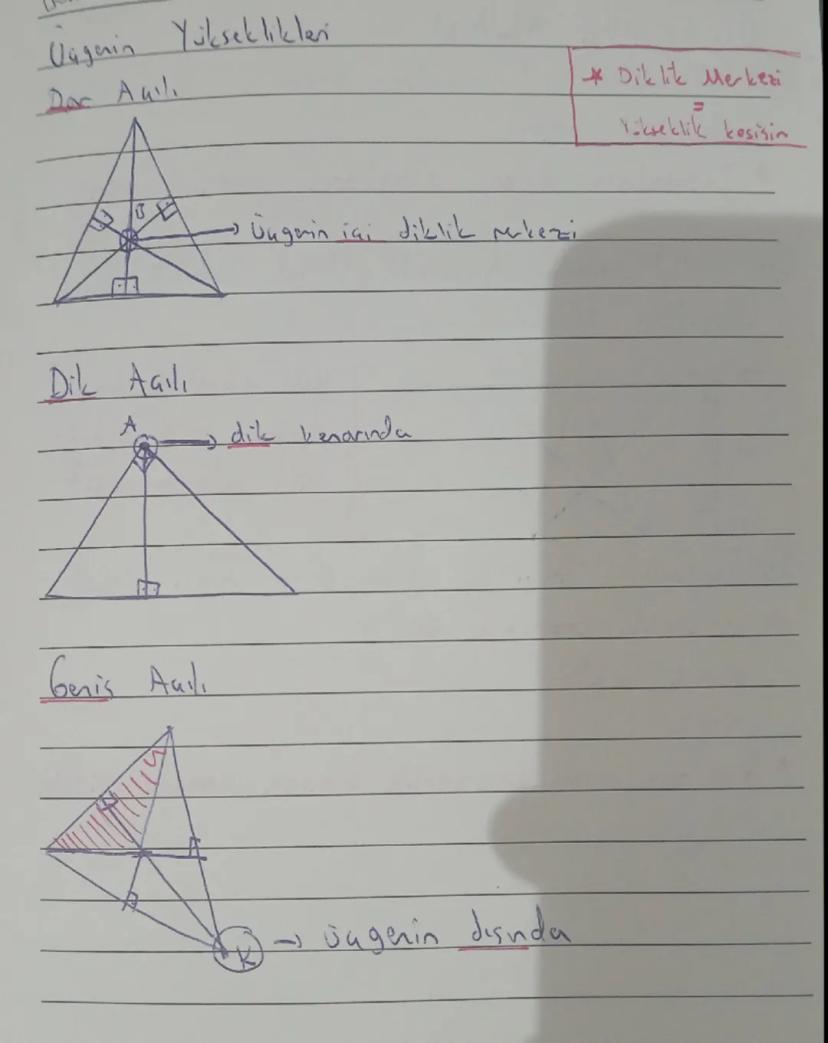 Üçgenin Yükseklikleri
* Diklik Merkezi
=
Yükseklik kesişin
Dar Açılı
Üçgenin içi diklik merkezi
Dik Açılı
A
dik kenarında
Geniş Açılı
K → üçgenin dışında